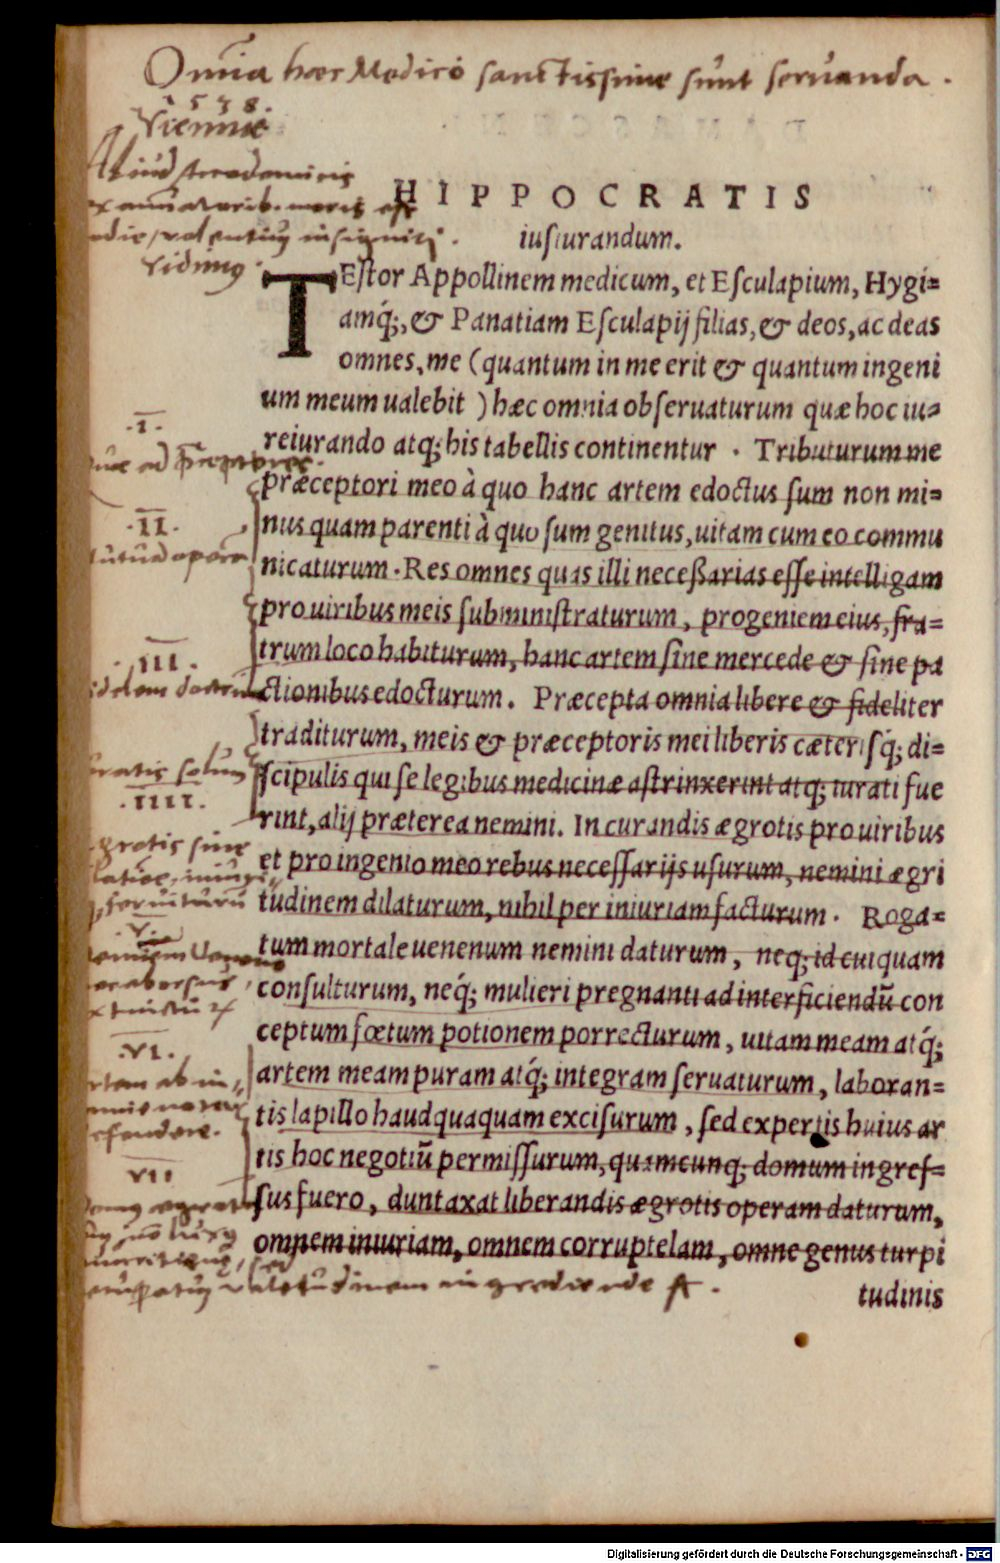 Omnia haec Medico sanctissime sunt servanda.
1538.
Viennae
HIPPOCRATIS
iusiurandum.
TEstor Appollinem medicum, et Esculapium, Hygi=
amq́;, & Panatiam Esculapij filias, & deos, ac deas
omnes, me (quantum in me erit & quantum ingeni
um meum ualebit ) hæc omnia obseruaturum quæ hoc iu=
reiurando atq; his tabellis continentur . Tributurum me
præceptori meo à quo hanc artem edoctus sum non mi=
nus quam parenti à quo sum genitus, uitam cum eo commu
nicaturum. Res omnes quas illi neceßarias esse intelligam
pro uiribus meis subministraturum, progeniem eius, fra=
trum loco habiturum, hanc artem sine mercede & sine pa
ctionibus edocturum. Præcepta omnia libere & fideliter
traditurum, meis & præceptoris mei liberis cæterisq́; di=
scipulis qui se legibus medicinæ astrinxerint atq; iurati fue
rint, alij præterea nemini. In curandis ægrotis pro uiribus
et pro ingenio meo rebus necessarijs usurum, nemini ægri
tudinem dilaturum, nihil per iniuriam facturum. Roga=
tum mortale uenenum nemini daturum, neq; id cuiquam
consulturum, neq́; mulieri pregnanti ad interficiendū con
ceptum fœtum potionem porrecturum, uitam meam atq́;
artem meam puram atq́; integram seruaturum, laboran=
tis lapillo haudquaquam excisurum, sed expertis huius ar
tis hoc negotiū permissurum, quamcunq; domum ingres=
sus fuero, duntaxat liberandis ægrotis operam daturum,
omnem iniuriam, omnem corruptelam, omne genus turpi
tudinis
.I.
.II.
.III.
.IIII.
.V.
.VI.
VII
Digitalisierung gefördert durch die Deutsche Forschungsgemeinschaft - DFG